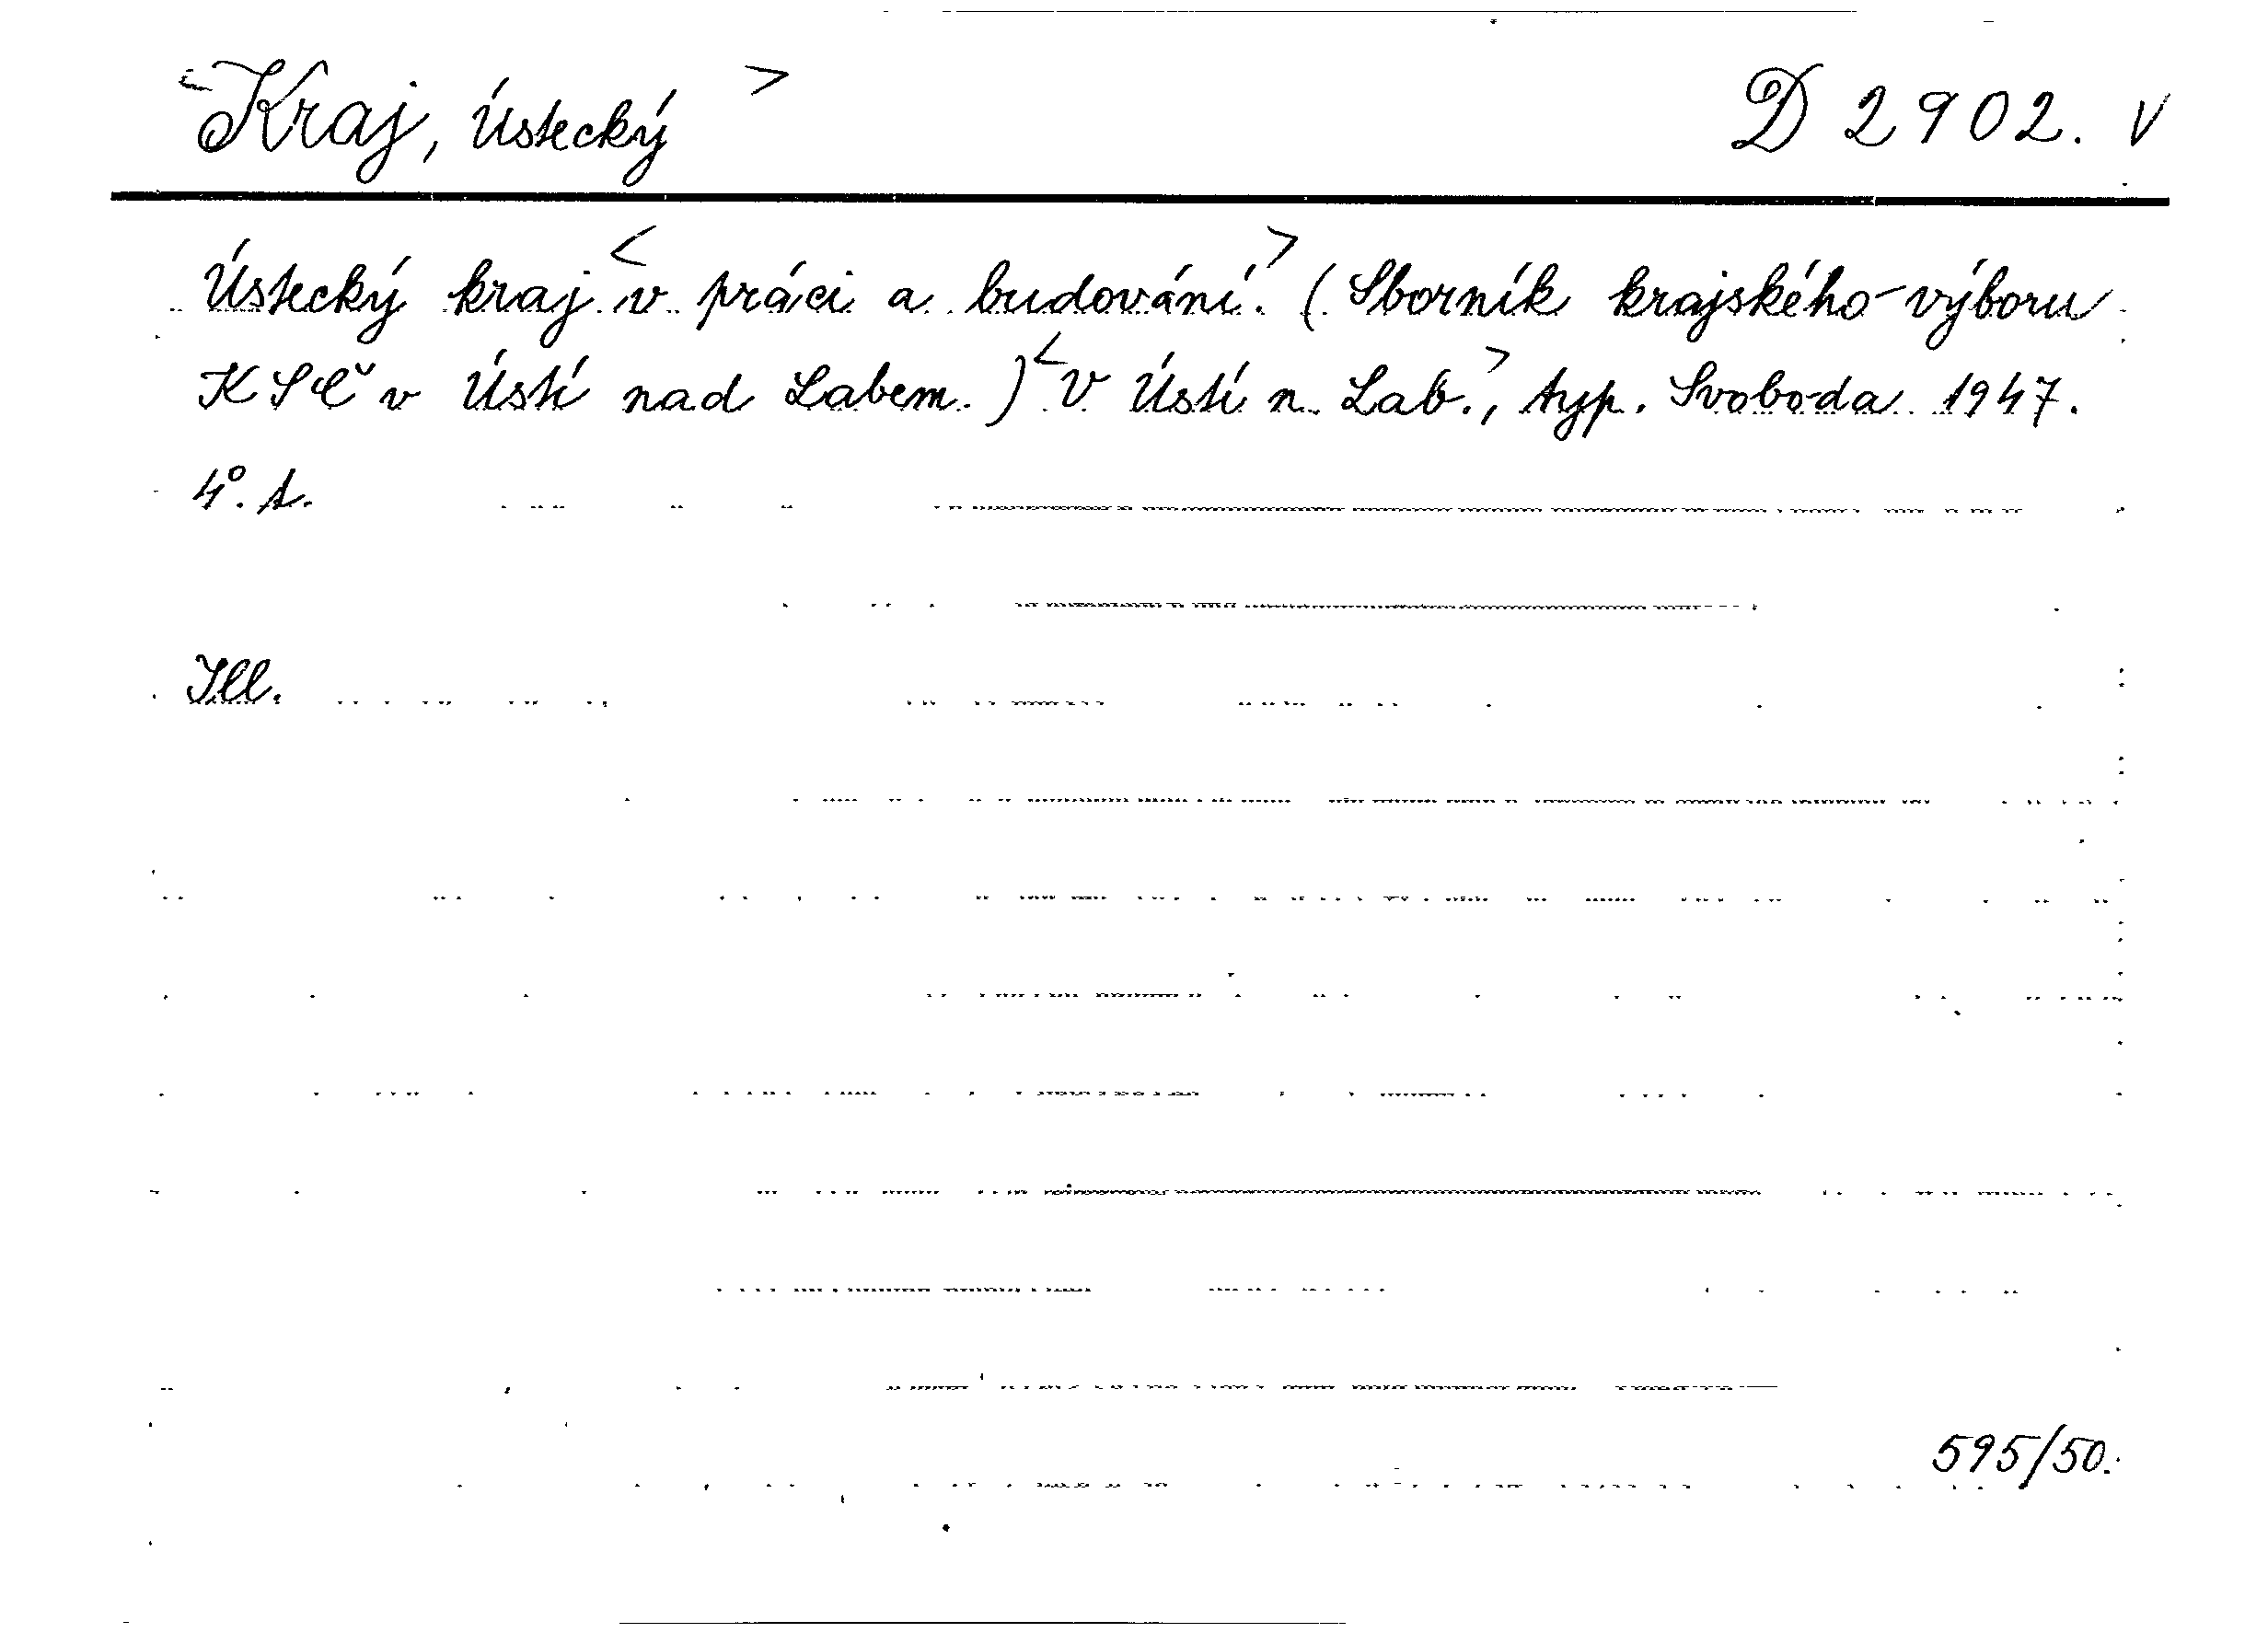 <Kraj, ústecký> D 2902. V
Ústecký kraj <v práci a budování.> (Sborník krajského výboru
KSČ v Ústí nad Labem.) <V Ústí n. Lab.>, typ. Svoboda 1947.
4°. s.
Ill.
595/50.